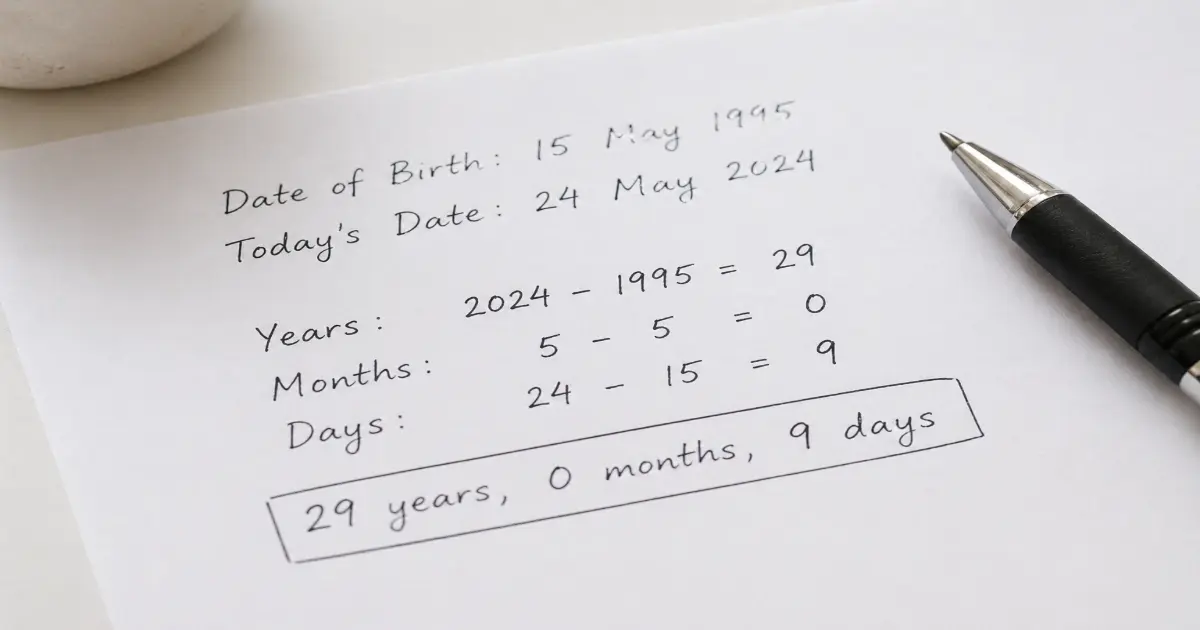 Date of Birth: 15 May 1995
Today's Date: 24 May 2024
Years: 2024 - 1995 = 29
Months: 5 - 5 = 0
Days: 24 - 15 = 9
29 years, 0 months, 9 days